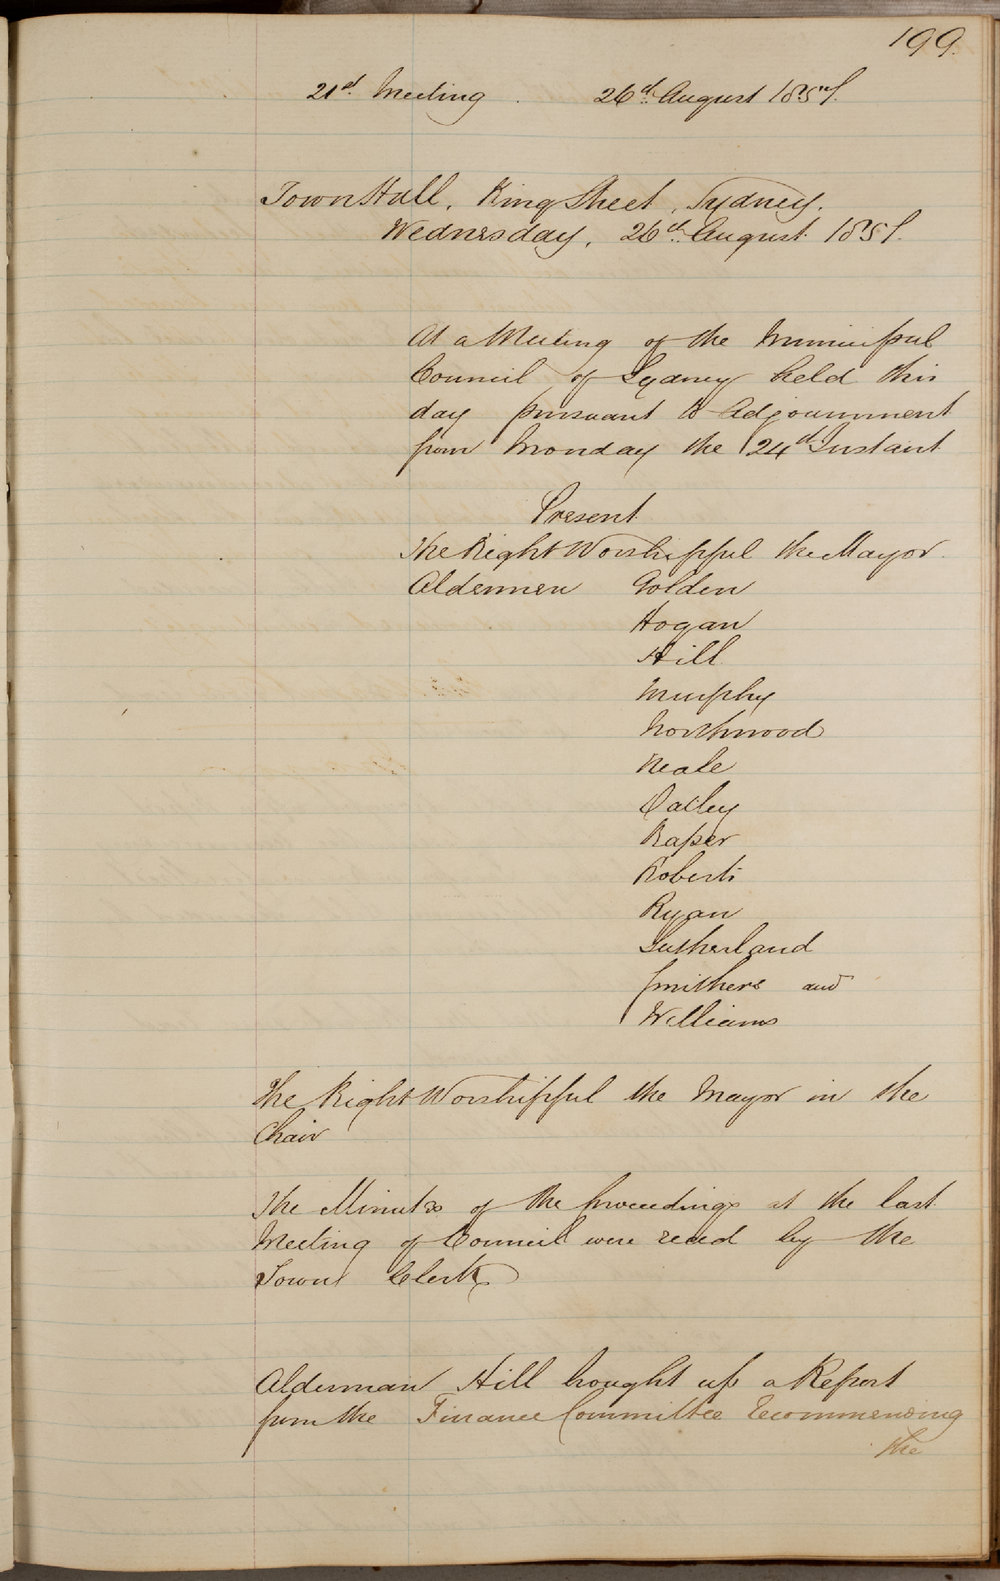 199.
21st Meeting. 26th August 1857.
Town Hall, King Street, Sydney.
Wednesday, 26th August 1857.
At a Meeting of the Municipal
Council of Sydney held this
day pursuant to Adjournment
from Monday the 24th Instant
Present
The Right Worshipful the Mayor.
Aldermen Golden
Hogan
Hill
Murphy
Northwood
Neale
Oatley
Raper
Roberts
Ryan
Sutherland
Smithers and
Williams
The Right Worshipful the Mayor in the
Chair
The Minutes of the Proceedings at the last
Meeting of Council were read by the
Town Clerk
Alderman Hill brought up a Report
from the Finance Committee Recommending
the